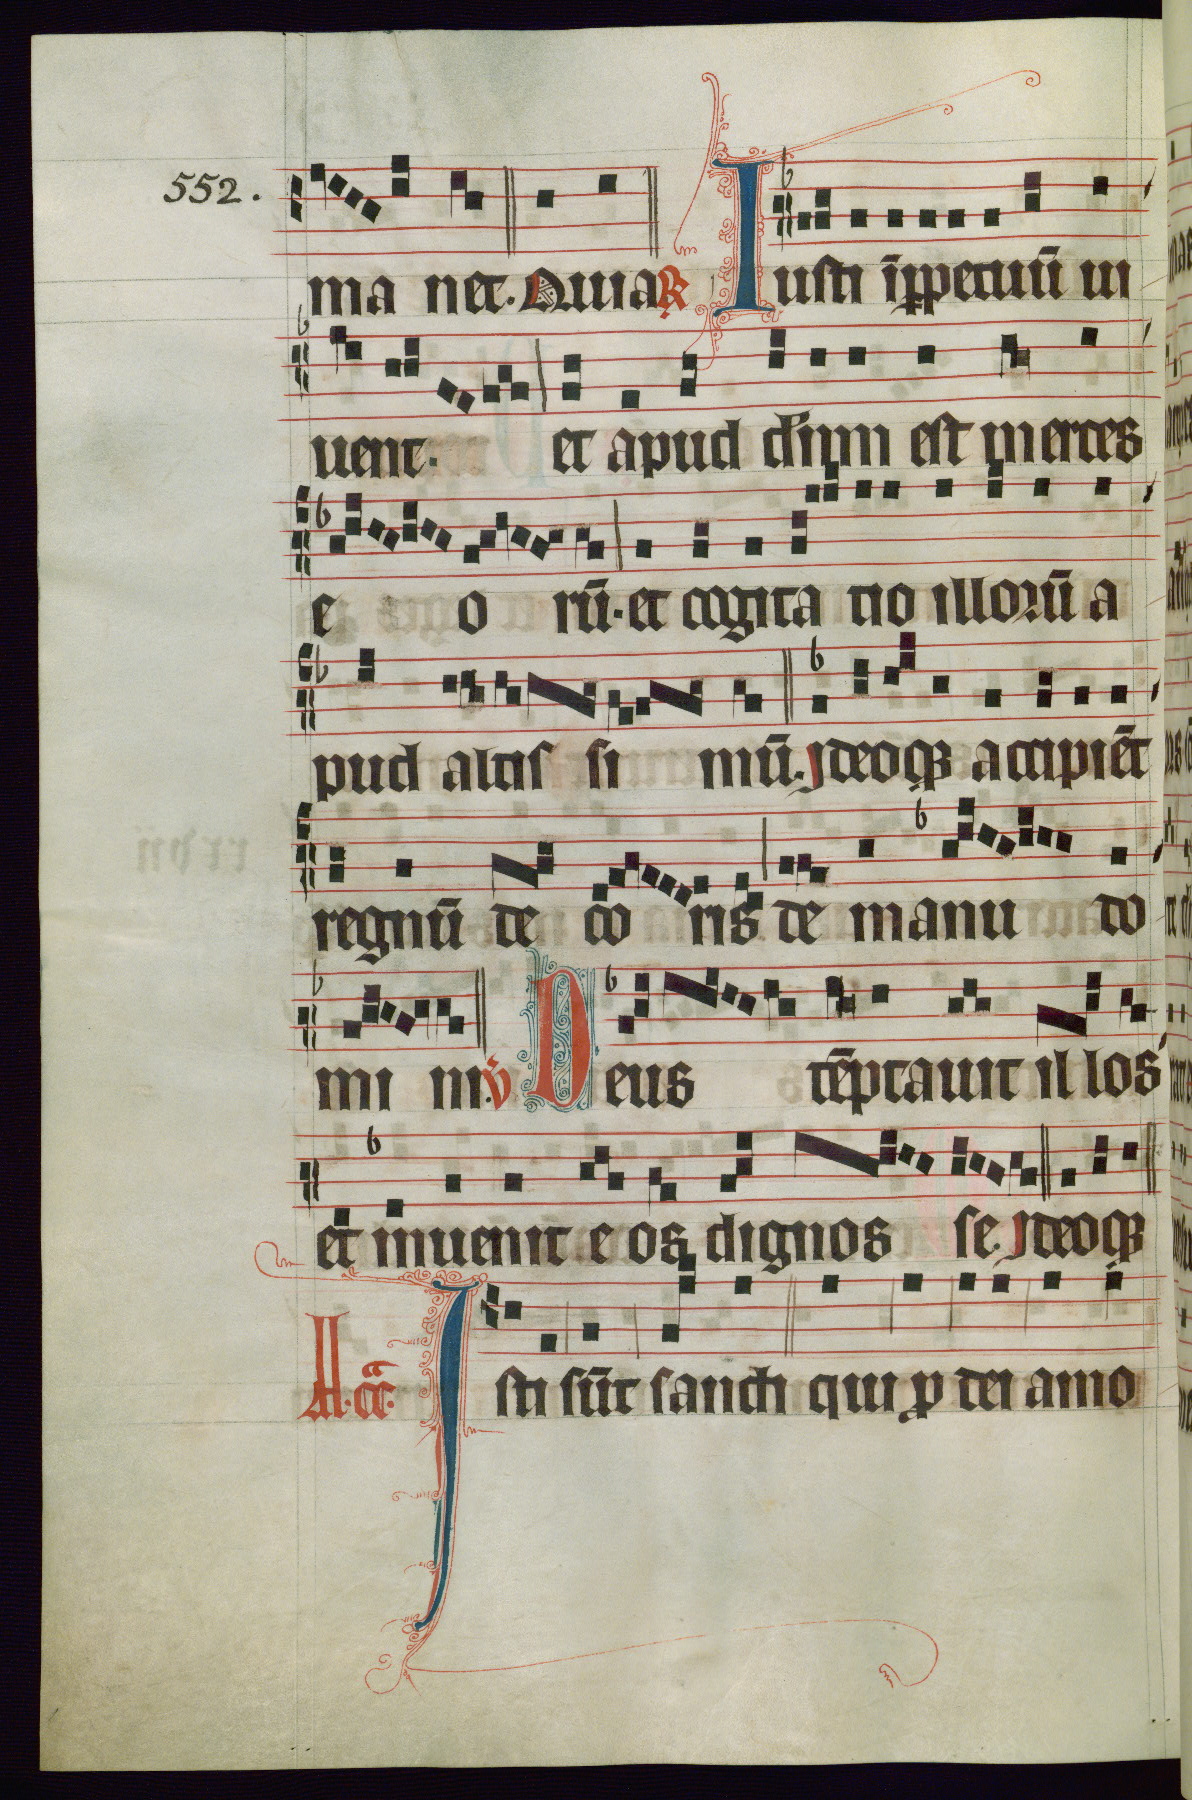 552.
ma net. Quia R̸ Iusti ī p̲petuū ui
uent. et apud dn̄m est merces
e o rū. et cogita tio illorū a
pud altis si mū. Ideoqꝫ accipiēt
regnū de co ris de manu do
mi ni. v̄ Deus tēptauit il los
et inuenit e os dignos se. Ideoqꝫ
Isti sūt sancti qui ꝓ dei amo